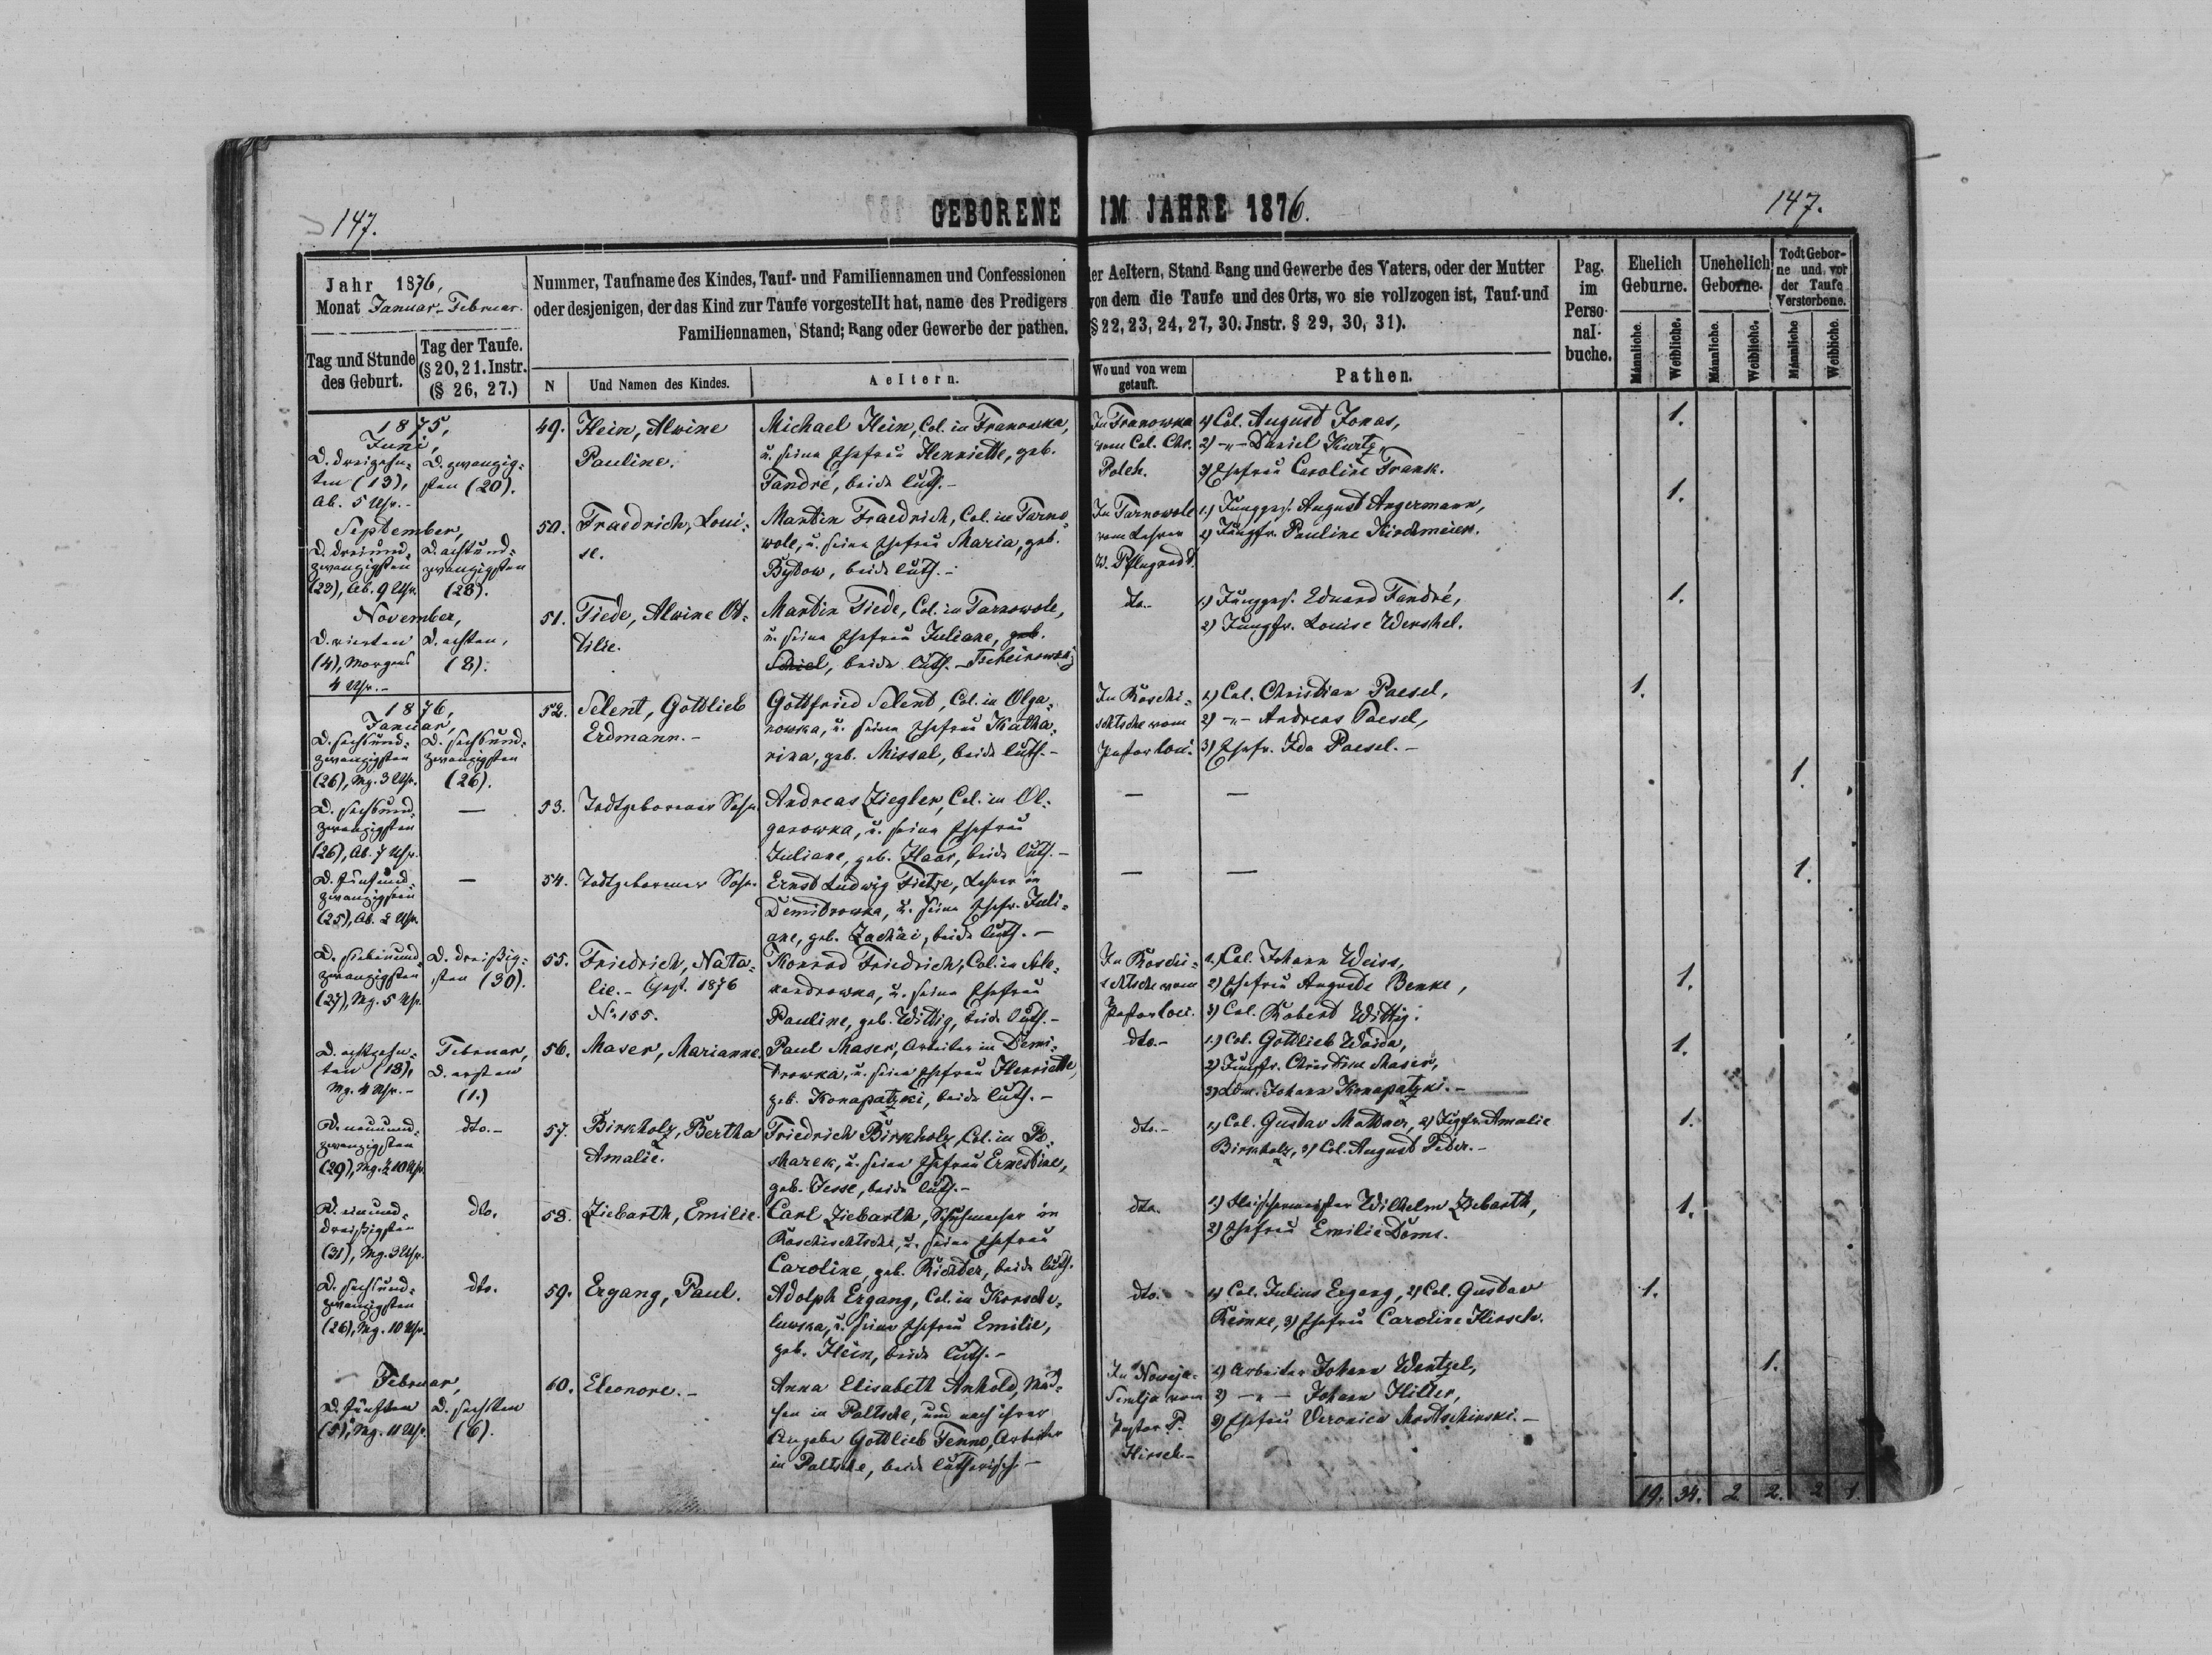 147.
GEBORENE IM JAHRE 1876.
147.
Jahr 1876,
Monat Januar-Februar.
Tag und Stunde
des Geburt.
Tag der Taufe.
(§ 20, 21. Instr.
(§ 26, 27.)
Nummer, Taufname des Kindes, Tauf- und Familiennamen und Confessionen
oder desjenigen, der das Kind zur Taufe vorgestellt hat, name des Predigers
Familiennamen, Stand; Rang oder Gewerbe der pathen.
N
Und Namen des Kindes.
Aeltern.
der Aeltern, Stand Rang und Gewerbe des Vaters, oder der Mutter
von dem die Taufe und des Orts, wo sie vollzogen ist, Tauf-und
§ 22, 23, 24, 27, 30. Jnstr. § 29, 30, 31).
Wo und von wem
getauft.
Pathen.
Pag.
im
Perso-
nal-
buche.
Ehelich
Geburne.
Unehelich
Geborne.
Todt Gebor-
ne und vor
der Taufe
Verstorbene.
Männliche.
Weibliche.
Männliche.
Weibliche.
Männliche
Weibliche.
1875,
Juni,
D. dreizehn-
ten (13),
Ab. 5 Uhr.-
D. zwanzig-
sten (20).
49.
Hein, Alwine
Pauline.
Michael Hein, Col. in Franowka,
u. seine Ehefrau Henriette, geb.
Fandré, beide luth.-
In Franowka
vom Col. Chr.
Polch.
1) Col. August Jonas,
2) -"- Daniel Kurtz,
3) Ehefrau Caroline Frank.
1.
September,
D. dreiund-
zwanzigsten
(23), Ab. 9 Uhr.
D. achtund-
zwanzigsten
(28).
50.
Fraedrich, Loui-
se.
Martin Fraedrich, Col. in Tarno-
wole, u. seine Ehefrau Maria, geb.
Bytow, beide luth.-
In Tarnowole
vom Lehrer
W. Pflugradt.
1.) Junggs. August Angermann,
2) Jungfr. Pauline Kirchmeier.
1.
November,
D. vierten
(4), Morgens
4 Uhr.-
D. achten,
(8).
51.
Tiede, Alwine Ot-
tilie.
Martin Tiede, Col. in Tarnowole,
u. seine Ehefrau Juliane, geb.
Schiel, beide luth.-
dto.
1.) Junggs. Eduard Fandré,
2) Jungfr. Louise Wershel.
1.
1876,
Januar,
D. sechsund-
zwanzigsten
(26), Mg. 3 Uhr.
D. sechsund-
zwanzigsten
(26).
52.
Selent, Gottlieb
Erdmann.-
Gottfried Selent, Col. in Olga-
nowka, u. seine Ehefrau Katha-
rina, geb. Missal, beide luth.-
In Roschi-
schtsche vom
Pastor loci.
1.) Col. Christian Paesel,
2) -"- Andreas Paesel,
3) Ehefr. Ida Paesel.-
1.
D. sechsund-
zwanzigsten
(26), Ab. 7 Uhr.
—
53.
Todtgeborener Sohn.
Andreas Ziegler, Col. in Ol-
ganowka, u. seine Ehefrau
Juliane, geb. Haar, beide luth.-
—
—
1.
D. fünfund-
zwanzigsten
(25), Ab. 2 Uhr.
—
54.
Todtgeborener Sohn.
Ernst Ludwig Fietze, Lehrer in
Demidrowka, u. seine Ehefr. Juli-
ane, geb. Zachäi, beide luth.-
—
—
1.
D. siebenund-
zwanzigsten
(27), Mg. 5 Uhr.
D. dreißig-
sten (30).
55.
Friedrich, Nata-
lie.- Gest. 1876
No 155.
Konrad Friedrich, Col. in Ale-
xandrowka, u. seine Ehefrau
Pauline, geb. Wittig, beide luth.-
In Roschi-
schtsche vom
Pastor loci.
1.) Col. Johann Weiss,
2) Ehefrau Auguste Benke,
3) Col. Robert Wittig.
1.
D. achtzehn-
ten (18),
Mg. 4 Uhr.-
Februar,
D. ersten
(1.)
56.
Maser, Marianne.
Paul Maser, Arbeiter in Demi-
drowka, u. seine Ehefrau Henriette,
geb. Konapatzki, beide luth.-
dto.-
1.) Col. Gottlieb Waida,
2) Jungfr. Christine Maser,
3) Johann Konapatzki.-
1.
D. neunund-
zwanzigsten
(29), Mg. ½ 10 Uhr.
dto.-
57.
Birkholz, Bertha
Amalie.
Friedrich Birkholz, Col. in Po-
sharek, u. seine Ehefrau Ernestine,
geb. Jesse, beide luth.-
dto.-
1.) Col. Gustav Mattner, 2) Jgfr. Amalie
Birkholz, 3) Col. August Feder.-
1.
D. einund-
dreißigsten
(31), Mg. 3 Uhr.
dto.
58.
Ziebarth, Emilie.
Carl Ziebarth, Schuhmacher in
Roschischtsche, u. seine Ehefrau
Caroline, geb. Richter, beide luth.
dto.
1.) Fleischermeister Wilhelm Ziebarth,
2) Ehefrau Emilie Doms.
1.
D. sechsund-
zwanzigsten
(26), Mg. 10 Uhr.
dto.
59.
Ergang, Paul.
Adolph Ergang, Col. in Korsche-
luwska, u. seine Ehefrau Emilie,
geb. Hein, beide luth.-
dto.
1.) Col. Julius Ergang, 2) Col. Gustav
Reinke, 3) Ehefrau Caroline Hirsch.
1.
Februar,
D. fünften
(5), Mg. 11 Uhr.
D. sechsten
(6).
60.
Eleonore.-
Anna Elisabeth Anhold, Mäd-
chen in Poltsche, und nach ihrer
Angabe Gottlieb Fenno, Arbeiter
in Poltsche, beide lutherisch.-
In Nowaja-
Semlja vom
Pastor P.
Hirsch.-
1) Arbeiter Johann Wentzel,
2) -"- Johann Hiller,
3) Ehefrau Veronica
1.
19. 34. 2. 2. 2 1.